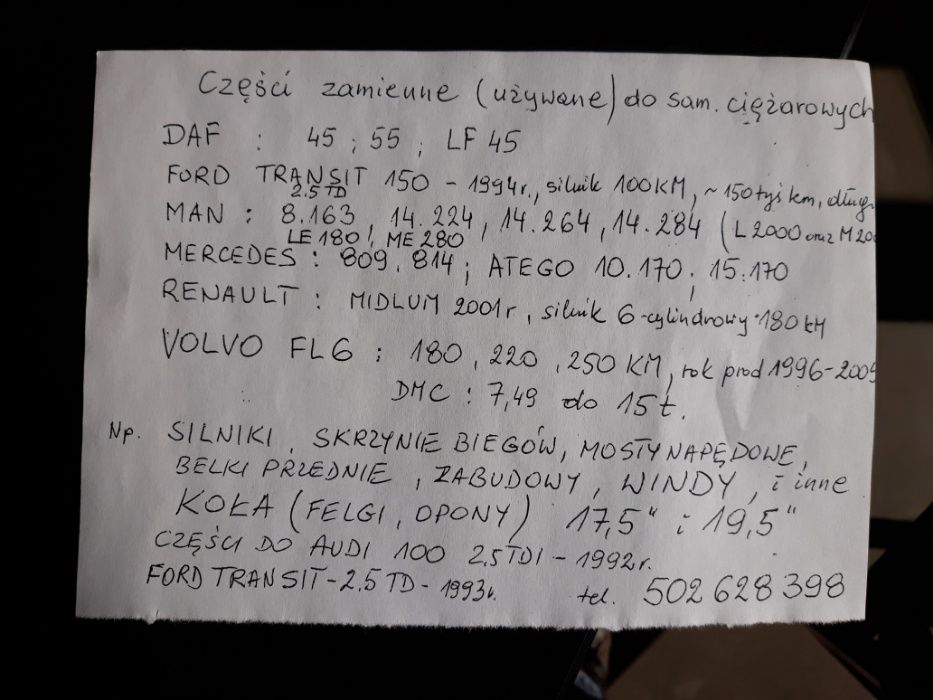 Części zamienne (używane) do sam. ciężarowych
DAF : 45 ; 55 ; LF 45
FORD TRANSIT 150 - 1994r., silnik 100KM, ~ 150 tyś km, długi
2.5 TD
MAN : 8.163, 14.224, 14.264, 14.284 (L2000 oraz M200
LE 180!, ME 280
MERCEDES : 809, 814 ; ATEGO 10.170 ; 15.170
RENAULT : MIDLUM 2001r, silnik 6-cylindrowy 180 KM
VOLVO FL6 : 180, 220, 250 KM, rok prod 1996-2005
DMC : 7,49 do 15 t.
Np. SILNIKI, SKRZYNIE BIEGÓW, MOSTY NAPĘDOWE,
BELKI PRZEDNIE, ZABUDOWY, WINDY, i inne
KOŁA (FELGI, OPONY) 17,5" i 19,5"
CZĘŚCI DO AUDI 100 2,5 TDI - 1992r.
FORD TRANSIT - 2.5 TD - 1993r. tel. 502 628 398